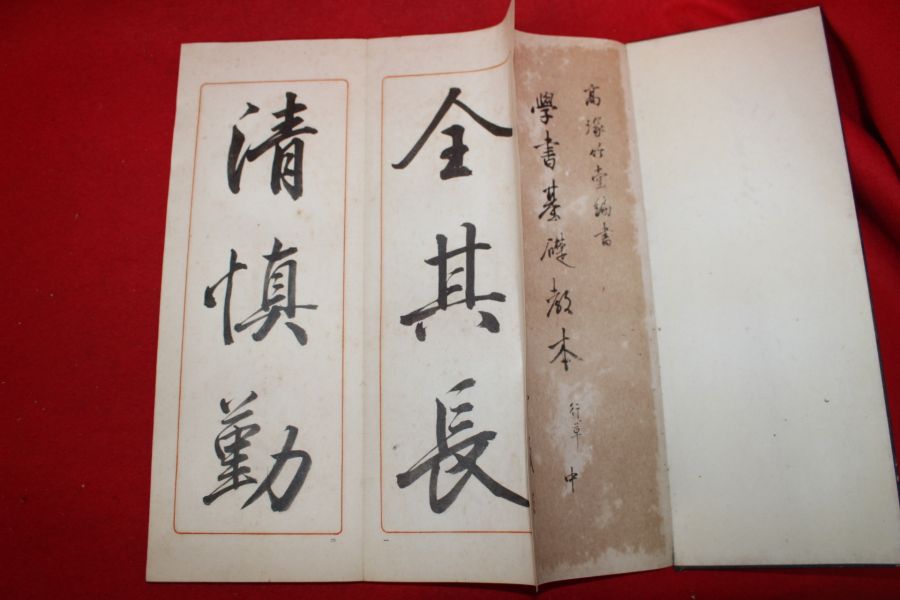 高塚竹堂編書
學書基礎教本 行草 中
全其長
清慎勤